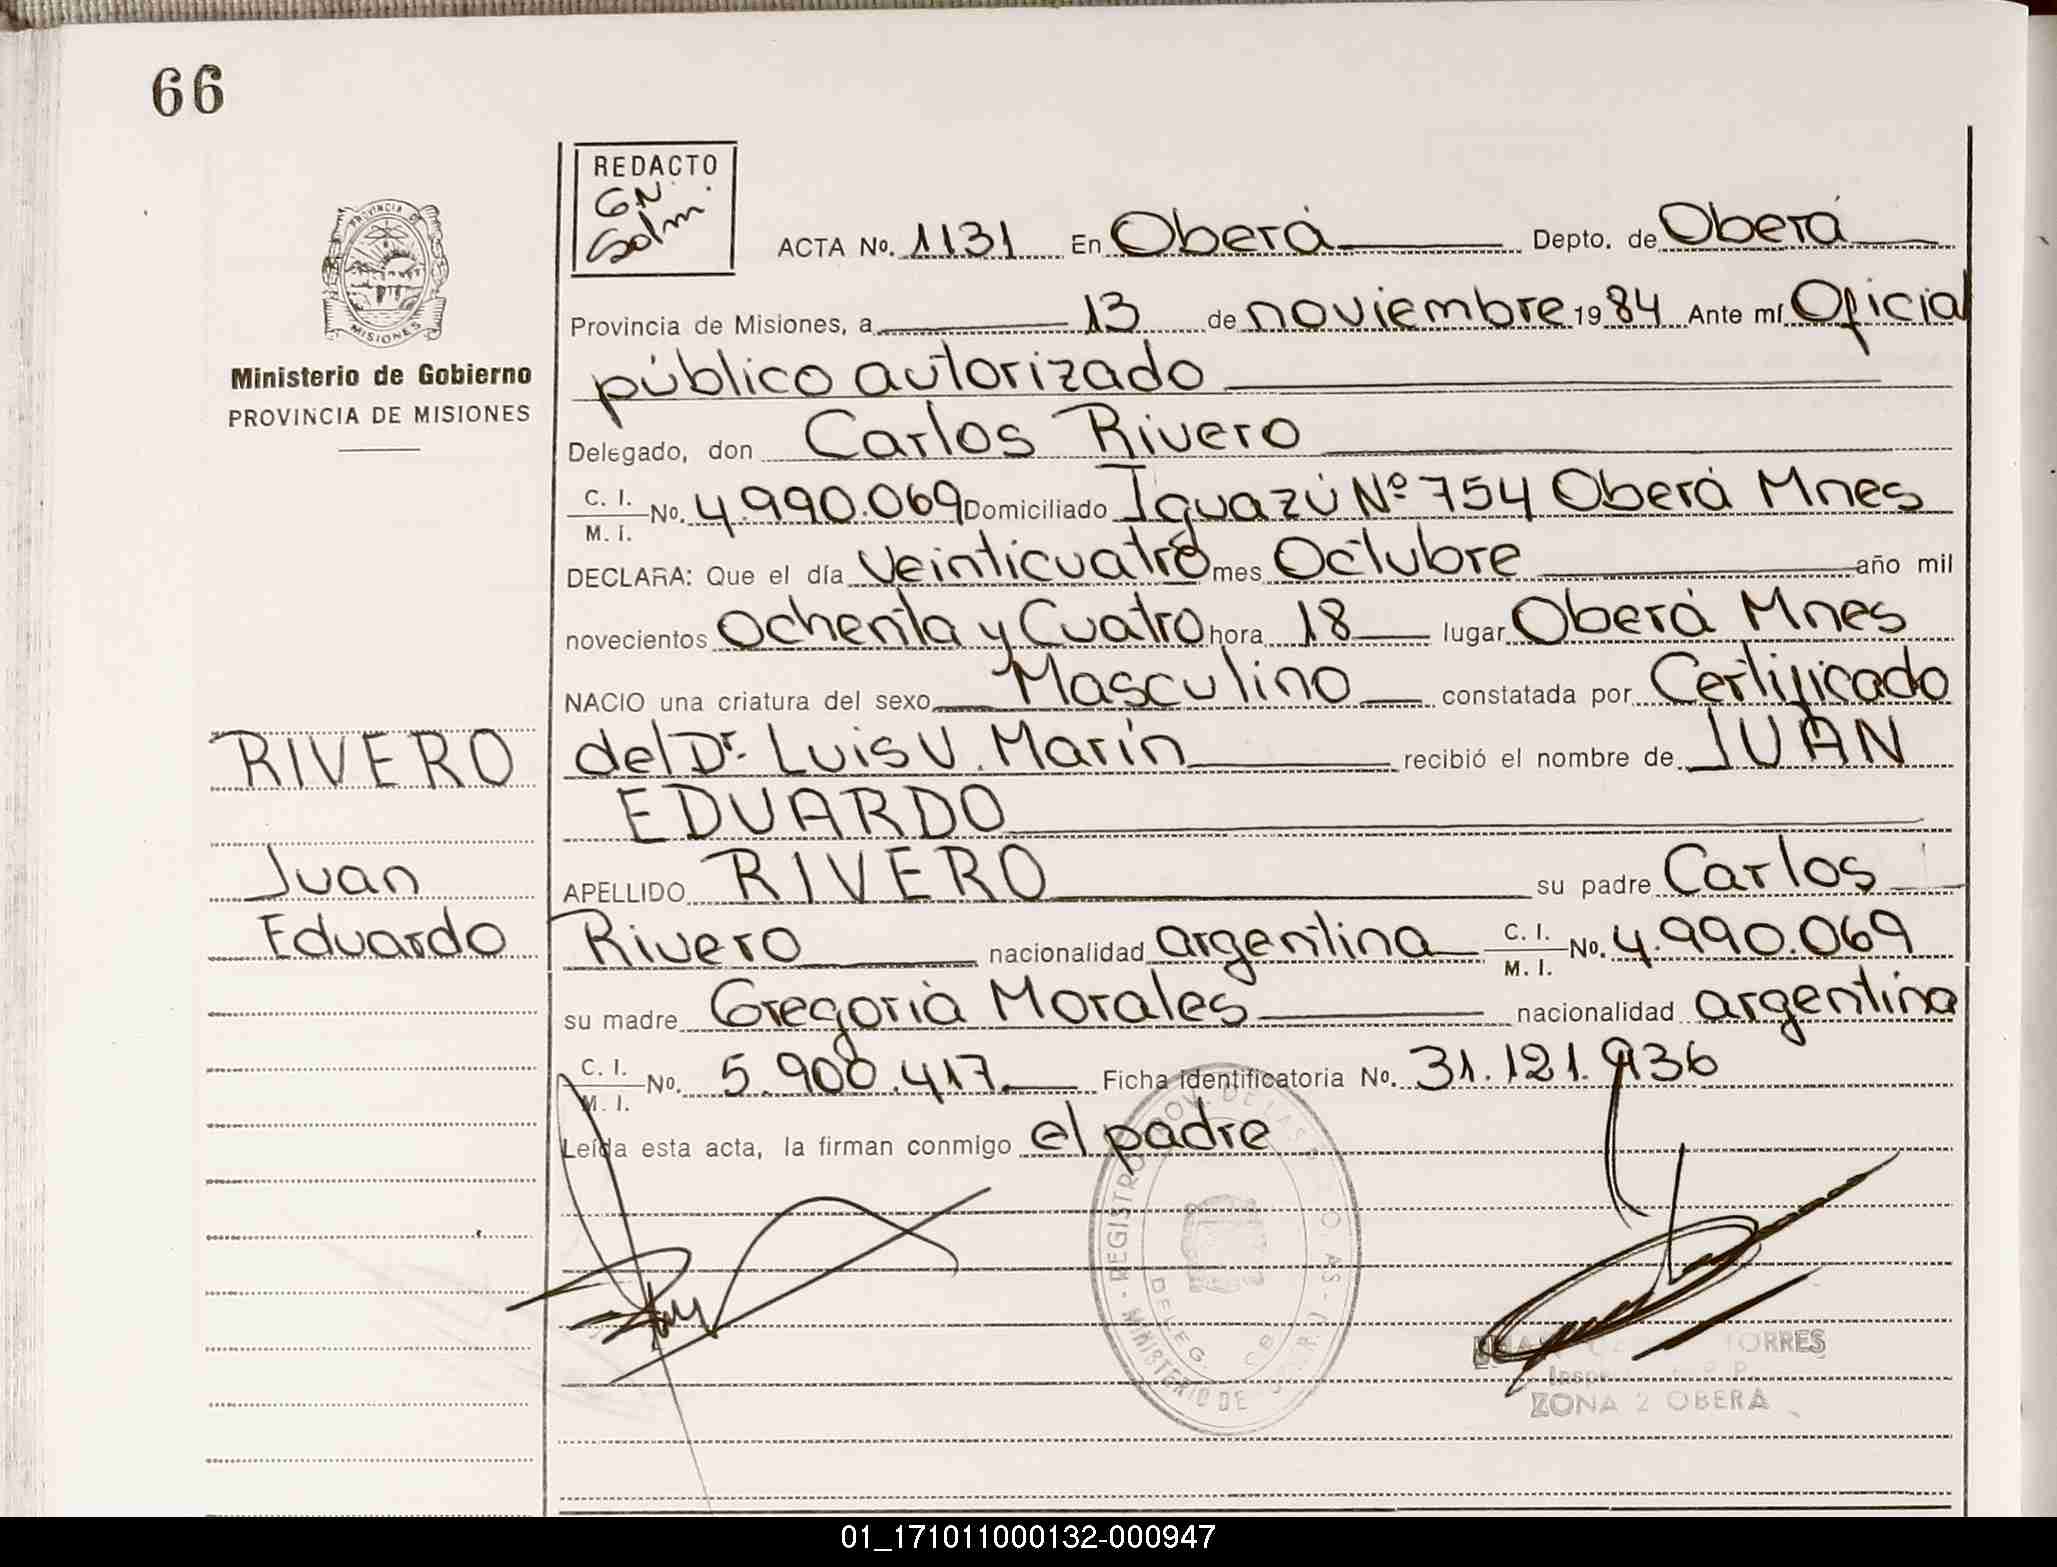 66
PROVINCIA DE
MISIONES
Ministerio de Gobierno
PROVINCIA DE MISIONES
RIVERO
Juan
Eduardo
REDACTO
G.N.
ACTA No. 1131 En Oberá Depto. de Oberá
Provincia de Misiones, a 13 de noviembre 1984 Ante mí Oficial
público autorizado
Delegado, don Carlos Rivero
C. I.
M. I. No. 4.990.069 Domiciliado Iguazú Nº 754 Oberá Mnes
DECLARA: Que el día Veinticuatro mes Octubre año mil
novecientos Ochenta y Cuatro hora 18 lugar Oberá Mnes
NACIO una criatura del sexo Masculino constatada por Certificado
del Dr. Luis V. Marín recibió el nombre de JUAN
EDUARDO
APELLIDO RIVERO su padre Carlos
Rivero nacionalidad argentina C. I.
M. I. No. 4.990.069
su madre Gregoria Morales nacionalidad argentina
C. I.
M. I. No. 5.900.417. Ficha Identificatoria No. 31.121.936
Leída esta acta, la firman conmigo el padre
REGISTRO PROV. DE LAS
MINISTERIO DE
DELEG.
TORRES
ZONA 2 OBERA
01_171011000132-000947